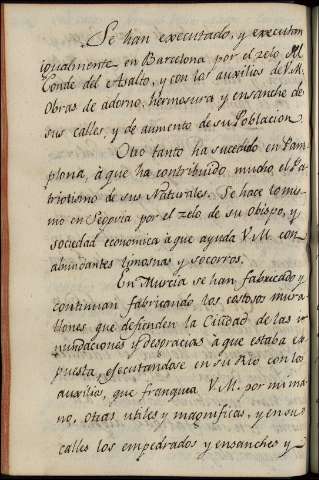 Se han executado, y executan
igualmente en Barcelona por el zelo del
Conde del Asalto, y con los auxilios de V.M.
Obras de adorno, hermosura y ensanche de
sus calles, y de aumento de su Poblacion.
Otro tanto ha sucedido en Pam
plona, à que ha contribuido mucho el Pa
triotismo de sus Naturales. Se hace lo mis
mo en Segovia por el zelo de su Obispo, y
sociedad economica à que ayuda V.M. con
abundantes limosnas y socorros.
En Murcia se han fabricado y
continuan fabricando los costosos mura
llones que defienden la Ciudad de las i
nundaciones y desgracias à que estaba ex
puesta, ejecutandose en su Rio con los
auxilios, que franquea V.M. por mi ma
no, otras utiles y magnificas, y en sus
calles los empedrados y ensanches y